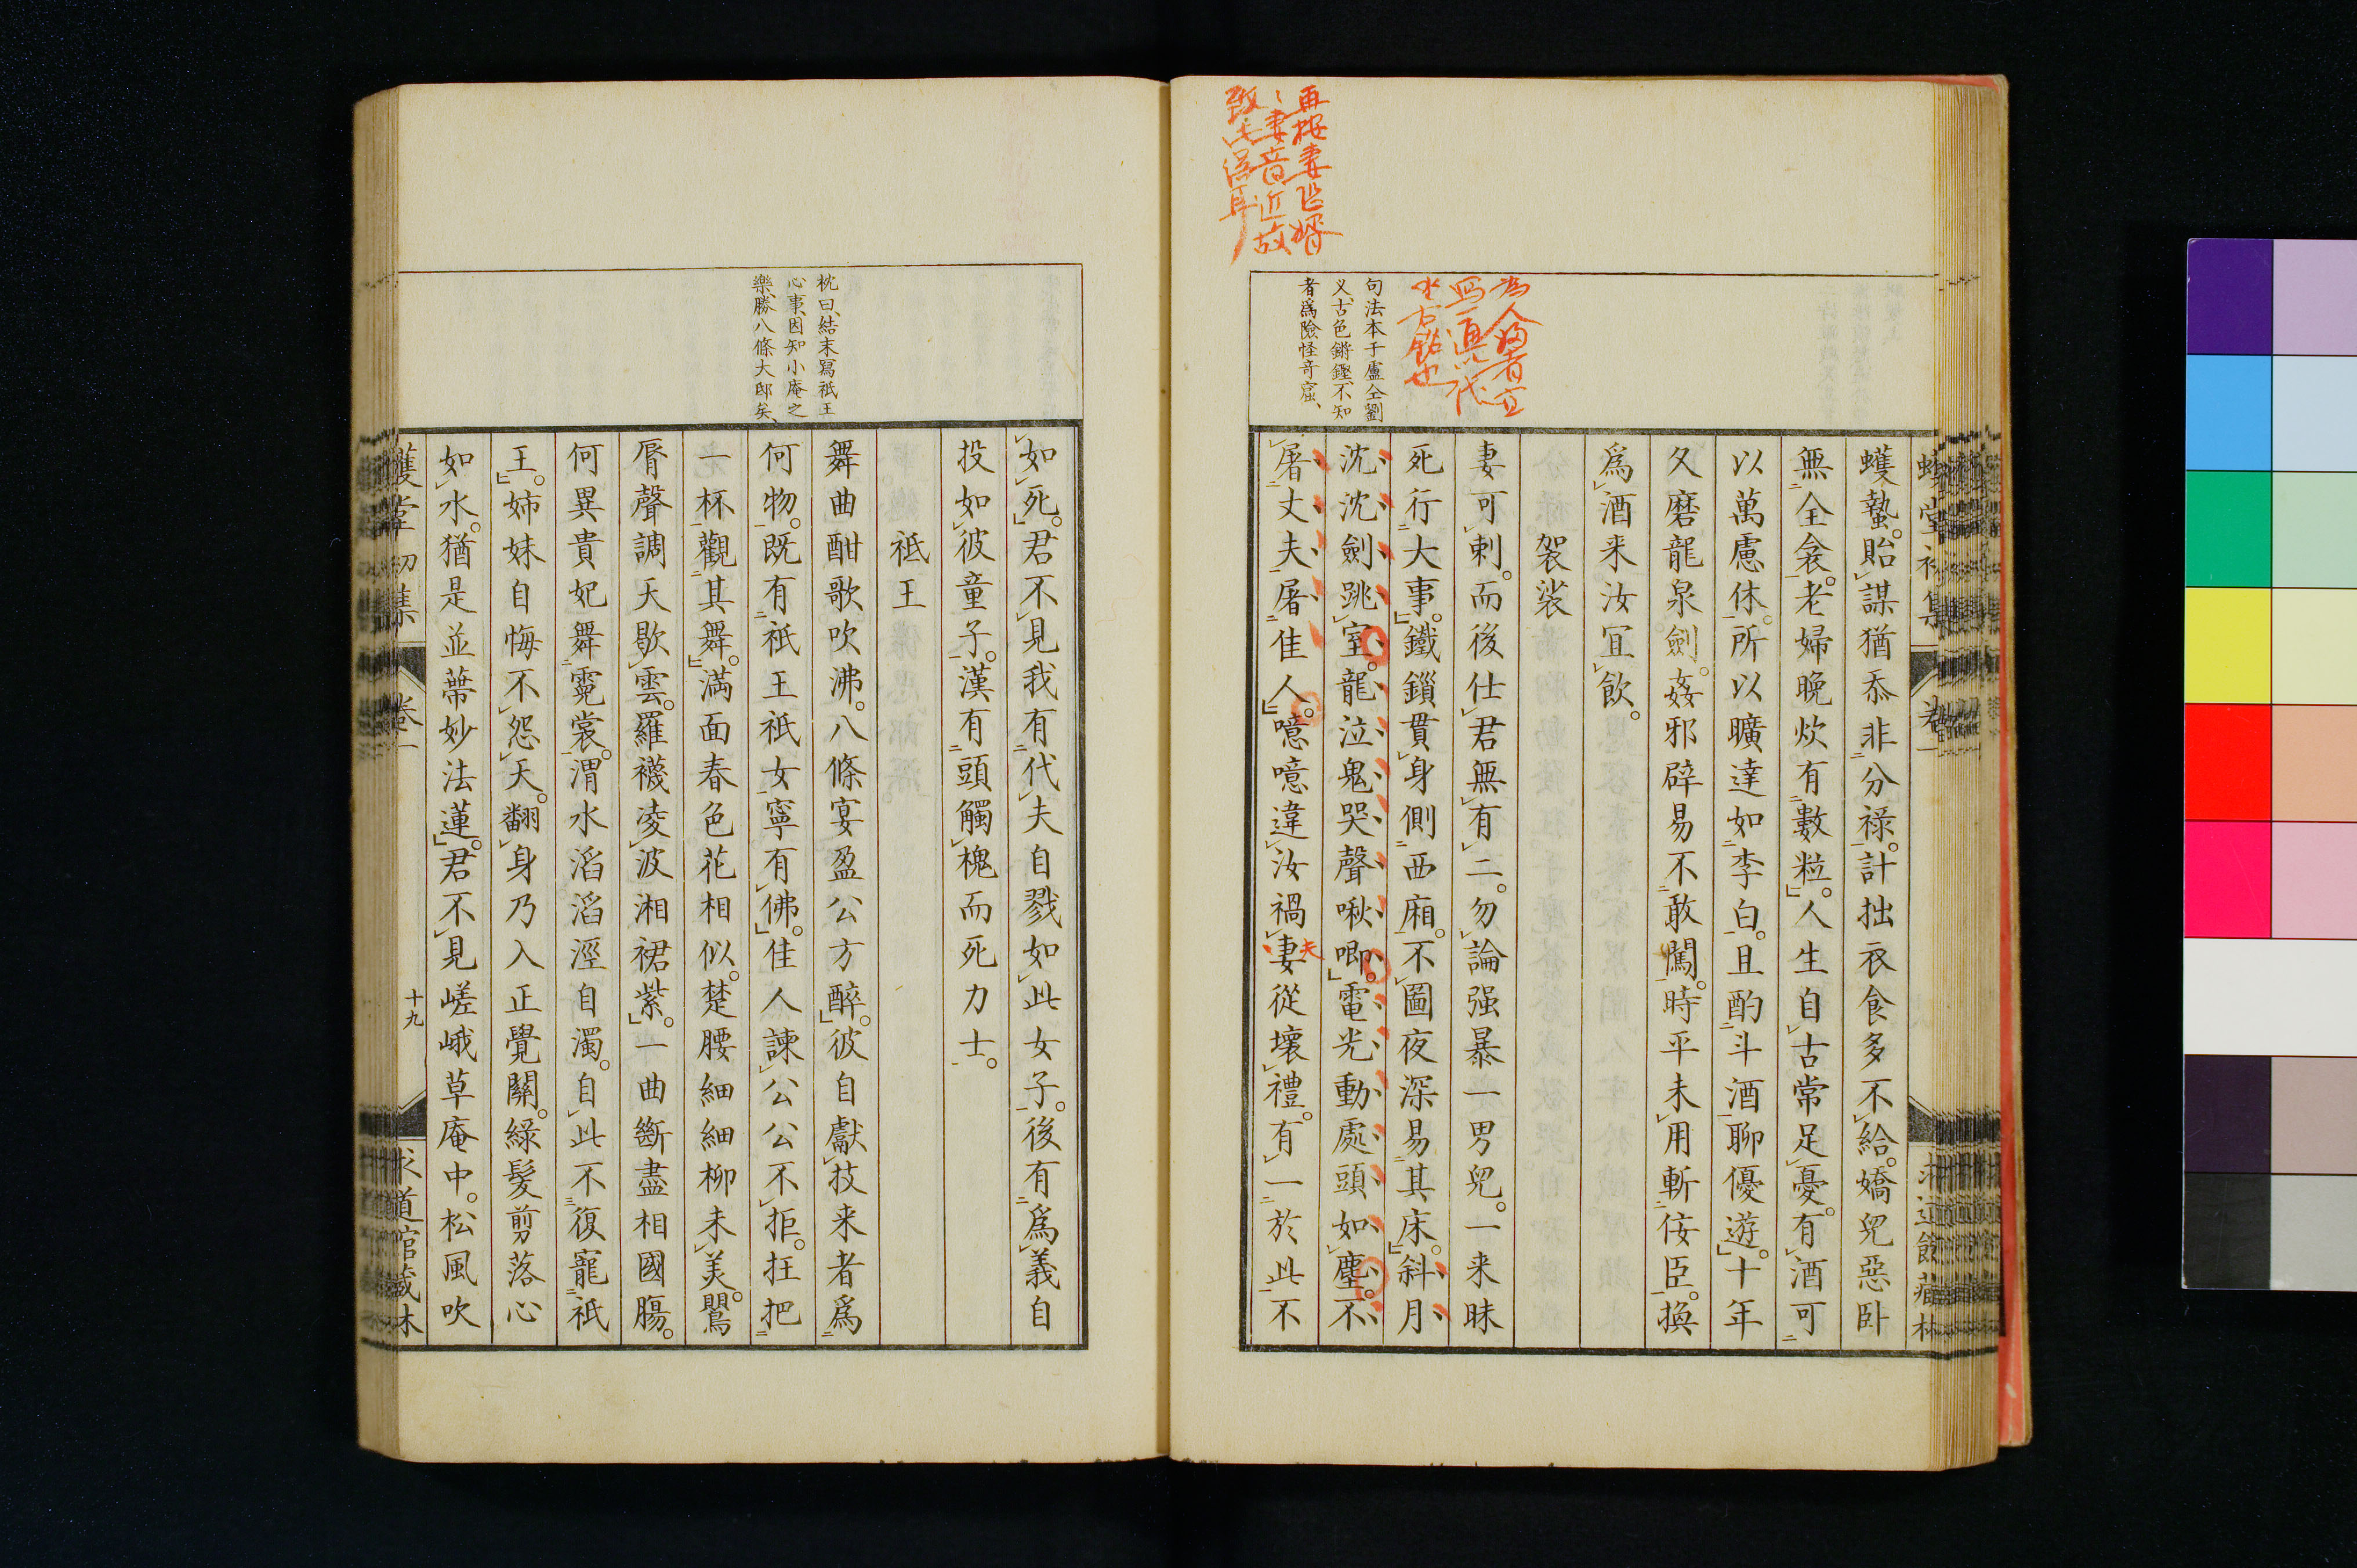 再按妻恐婿
妻音近故
致此誤耳
為人婦者宜
写一通以代
座右銘也
句法本于盧仝劉
义、古色鏘鏗、不知
者爲險怪奇窟、
蠖堂初集
卷一
求道館藏梓
蠖蟄。貽謀猶忝非分祿。計拙衣食多不給。嬌兒惡臥
無全衾。老婦晩炊有數粒。人生自古常足憂。有酒可
以萬慮休。所以曠達如李白。且酌斗酒聊優遊。十年
久磨龍泉劍。姦邪辟易不敢闖。時平未用斬佞臣。換
爲酒来汝冝飮。
袈裟
妻可刺。而後仕君無有二。勿論强暴一男兒。一来昧
死行大事。鐵鎖貫身側西廂。不圖夜深易其床。斜月
沈沈劍跳室。龍泣鬼哭聲啾唧。電光動處頭如塵。不
屠丈夫屠佳人。噫噫違汝禍妻從壞禮。有一於此不
夫
枕曰、結末寫祇王
心事、因知小庵之
樂、勝八條大邸矣、
如死。君不見我有代夫自戮如此女子。後有爲義自
投如彼童子。漢有頭觸槐而死力士。
祗王
舞曲酣歌吹沸。八條宴盈公方醉。彼自獻技来者爲
何物。既有祇王祇女寧有佛。佳人諫公公不拒。抂把
一杯觀其舞。満面春色花相似。楚腰細細柳未美。鸎
脣聲調天歇雲。羅襪凌波湘裙紫。一曲斷盡相國腸。
何異貴妃舞霓裳。渭水滔滔涇自濁。自此不復寵祇
王。姉妹自悔不怨天。翻身乃入正覺關。緑髮剪落心
如水。猶是並蔕妙法蓮。君不見嵯峨草庵中。松風吹
蠖堂初集
卷一
十九
求道館藏木